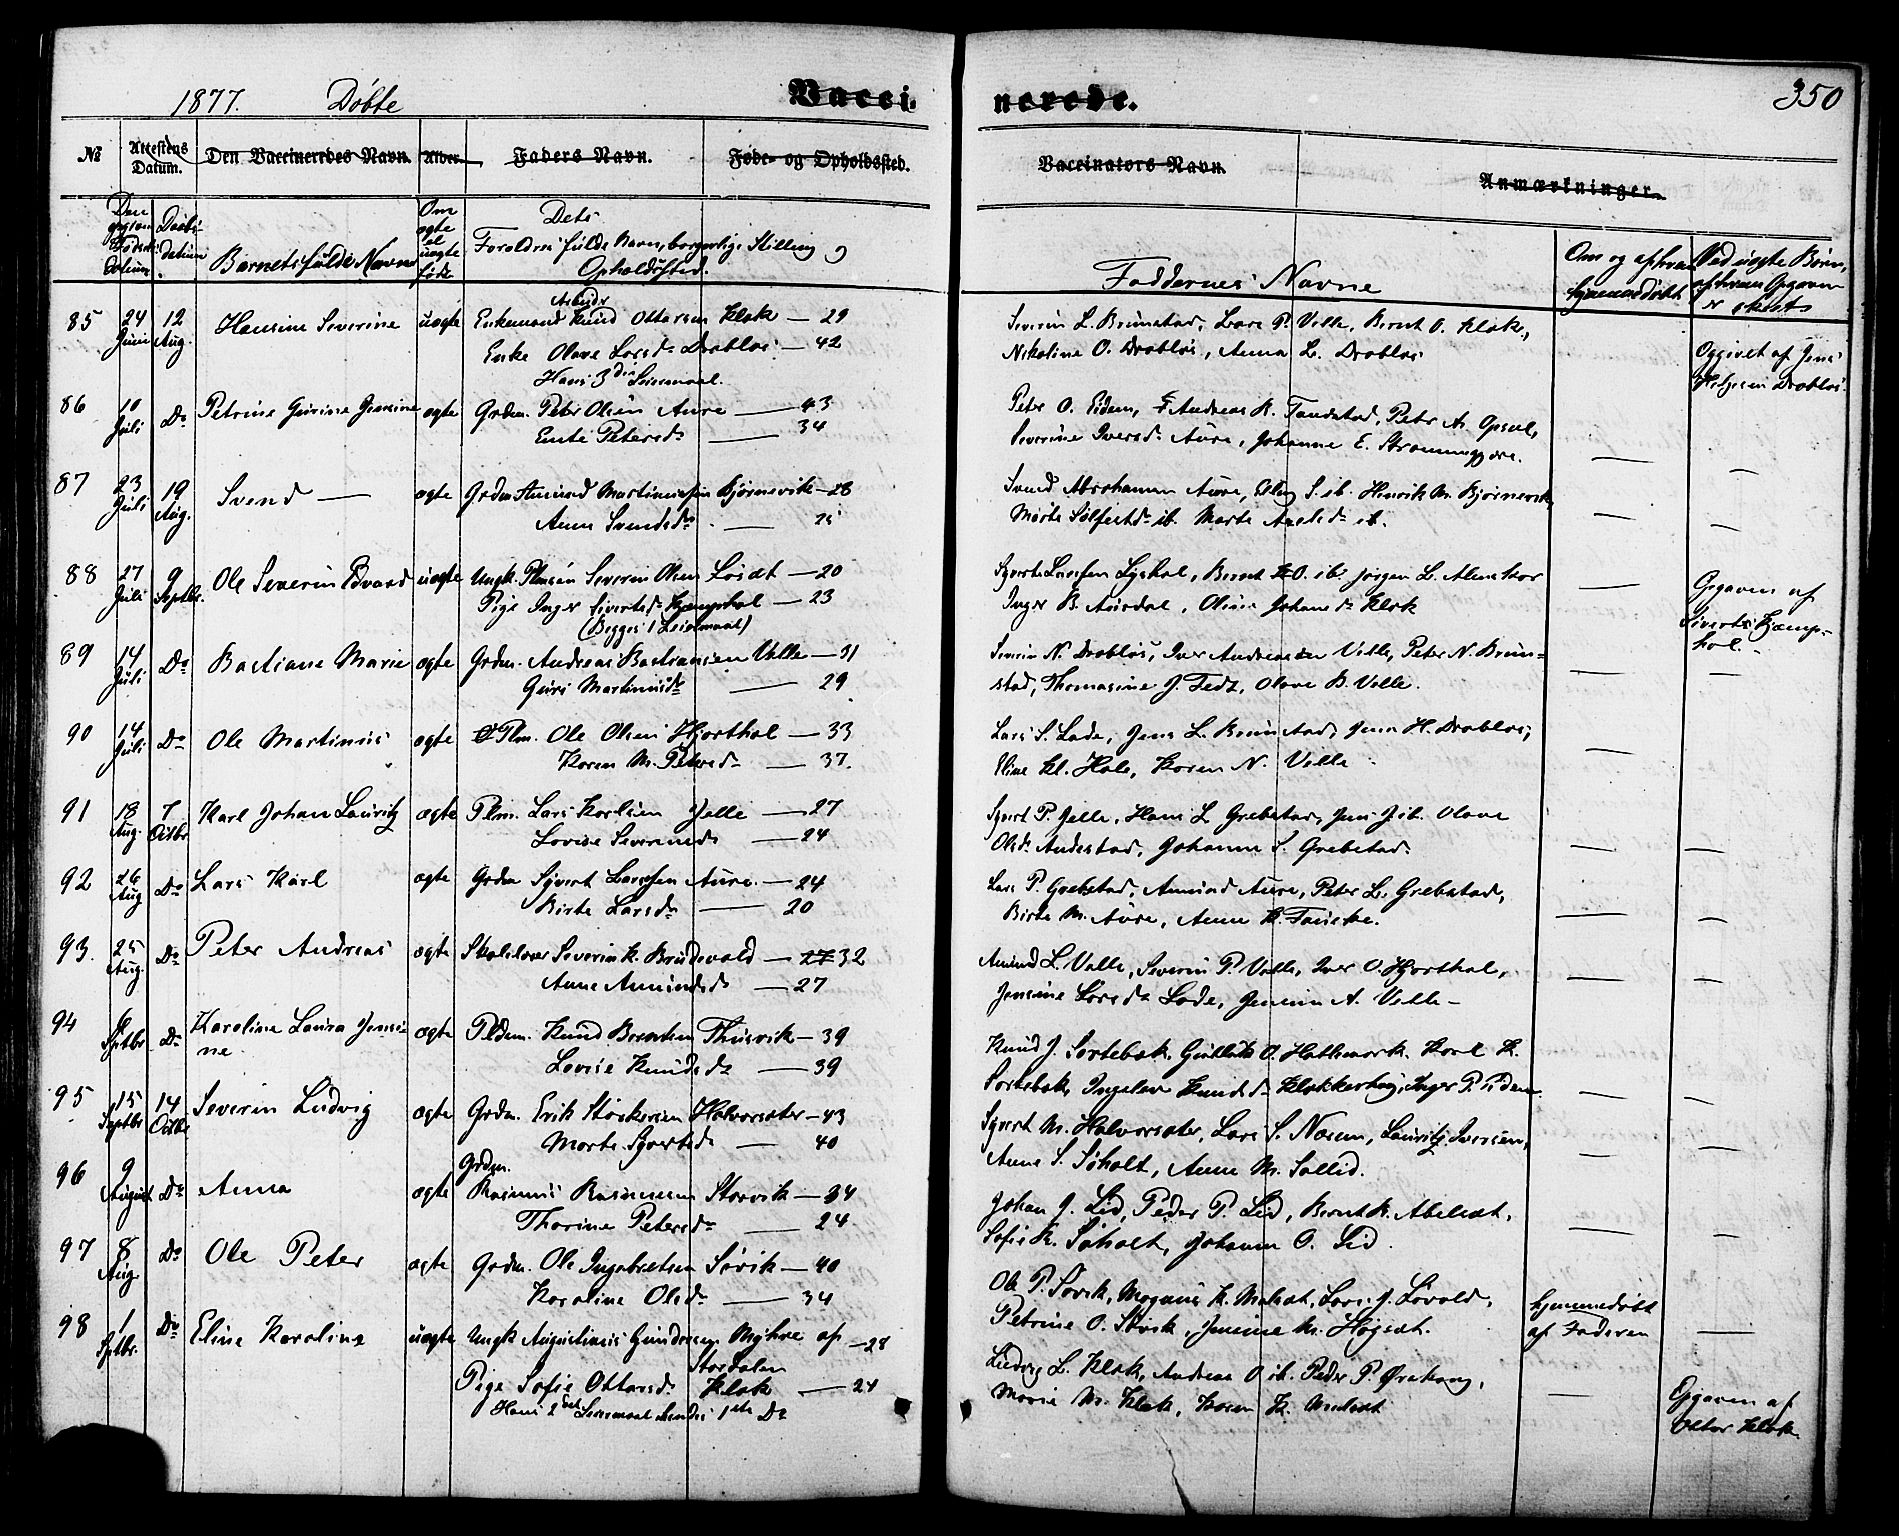 1877. Döbte Vacci. nerede. 350
No Attestens Datum. Den Vaccineredes Navn. Alder. Faders Navn. Føde- og Opholdssted. Vaccinators Navn. Anmærkninger.
Barnets fulde Navn
Dets
Forældres fulde Navn, borgerlige Stilling og
Opholdssted.
Faddernes Navne
Om og af hvem
hjemmedøbt
Ved uægte Børn,
af hvem Opgaven
er skeet
85 24 Juni 12 Aug. Hansine Severine uægte Enkemand Arbeider Knud Ottersen Klok — 29
Enke Olave Larsd. Drabløs — 42
Hans 3die Leiermaal.
Severin L. Brunstad, Lars P. Velle, Bernt O. Klok,
Nikoline O. Drabløs, Anna L. Drabløs
Opgivet af Jens
Drabløs
86 10 Juli Do Petrine Gurine Jensine ægte Grdm. Peter Olsen Aure — 43
Ente Petersd. — 34
Peter O. Eidem, Andreas K. Tandstad, Peter A. Opsal,
Severine Iversd. Aure, Johanne E. Strømmegjære.
87 23 Juli 19 Aug. Svend — ægte Grdm Amund Martinussen Bjørnevik — 28
Anne Svendsd. — 25
Svend Abrahamsen Aure, Elling S. ib. Henrik M. Bjørnevik
Marte Sølfestd. ib. Marte Axelsd. ib.
88 27 Juli 9 Septbr. Ole Severin Edvard uægte Ungk. Plmsøn Severin Olsen Løsæt — 20
Pige Inger Sivertsd. Kjemphol — 23
(Begges 1 Leiermaal)
Sjverts Larsen Lyshol, Bernt O. ib. Jørgen L. Almskor
Inger B. Aursdal, Oline Johansd. Klok
Opgaven af
Siverts Kjemp-
hol.
89 14 Juli Do Bastiane Marie ægte Grdm. Andreas Bastiansen Velle — 31
Guri Martinusd. — 29
Severin N. Drabløs, Iver Andreassen Velle, Peter N. Brun-
stad, Thomasine J. Fedt, Olave B. Velle.
90 14 Juli Do Ole Martinus ægte Plm. Ole Olsen Hjorthol — 33
Karen M. Petersd. — 37.
Lars S. Lade, Jens L. Brunstad, Jens H. Drabløs,
Eline Kl. Hole, Karen N. Velle
91 18 Aug. 7 Octbr Karl Johan Lauritz ægte Plm. Lars Karlsen Jelle — 27
Lovise Severinsd. — 24
Sjvert P. Jelle, Hans L Grebstad, Jens J. ib. Olave
Olsd. Andestad, Johanne S. Grebstad.
92 26 Aug Do Lars Karl ægte Grdm Sjvert Larssen Aure. — 24
Birte Larsd. — 20
Lars P. Grebstad, Amund Aure, Peter L. Grebstad,
Birte M. Aure, Anne K. Fauske.
93. 25 Aug. Do Peter Andreas ægte Skolelærer Severin K. Brudevold — 27 32
Anne Amundsd. — 27
Amund L. Velle, Severin P. Velle, Iver O. Hjorthol,
Jensine Larsd. Lade, Jensine A. Velle —
94 6 Septbr. Do Karoline Laura Jensi-
ne ægte Pldsm. Knud Berntsen Thusvik — 39
Lovise Knudsd. — 39
Knud J. Sortebæk, O. Hatlemark, Karl K.
Sortebæk, Ingeleve Knudsd. Klokkerhaug, Inger P. Eidem
95 15 Septbr 14 Octbr Severin Ludvig ægte Grdm. Erik Stockesen Halvorsæter — 43
Marte Sjvertsd. — 40
Sjvert M. Halvorsæter, Lars S. Næsen, Lauritz Iversen,
Anne S. Søholt, Anne M. Sollid.
96 9 August Do Anna ægte Grdm.
Rasmus Rasmussen Storvik — 34
Thorine Petersd. — 24
Johan J. Lid, Peder P. Lid, Bernt K. Abelsæt,
Sofie K. Søholt, Johanne O. Lid.
97 8 Aug. Do Ole Peter ægte Grdm. Ole Ingebretsen Søvik — 40
Karoline Olsd. — 34
Ole P. Søvik, Mogens K. Melsæt, Lars J. Løvold,
Petrine O. Søvik, Jensine M. Høgsæt.
hjemmedøbt
af Faderen
98 1 Sptbr. Do Eline Karoline uægte Ungk Augustinus Gundersen Myhre af — 28
Stordalen
Pige Sofie Ottersd. Klok — 24
Hans 2det Leiermaal hendes 1ste Do
Ludvig L. Klok, Andreas O. ib. Peder P. Ørskoug,
Marie M. Klok, Karen K. Melsæt
Opgaven af
Otter Klok.